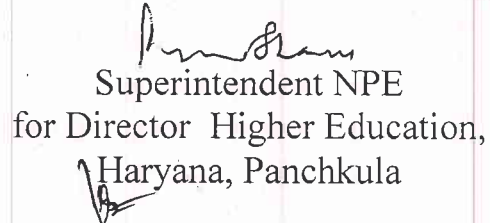 Superintendent NPE
for Director Higher Education,
Haryana, Panchkula